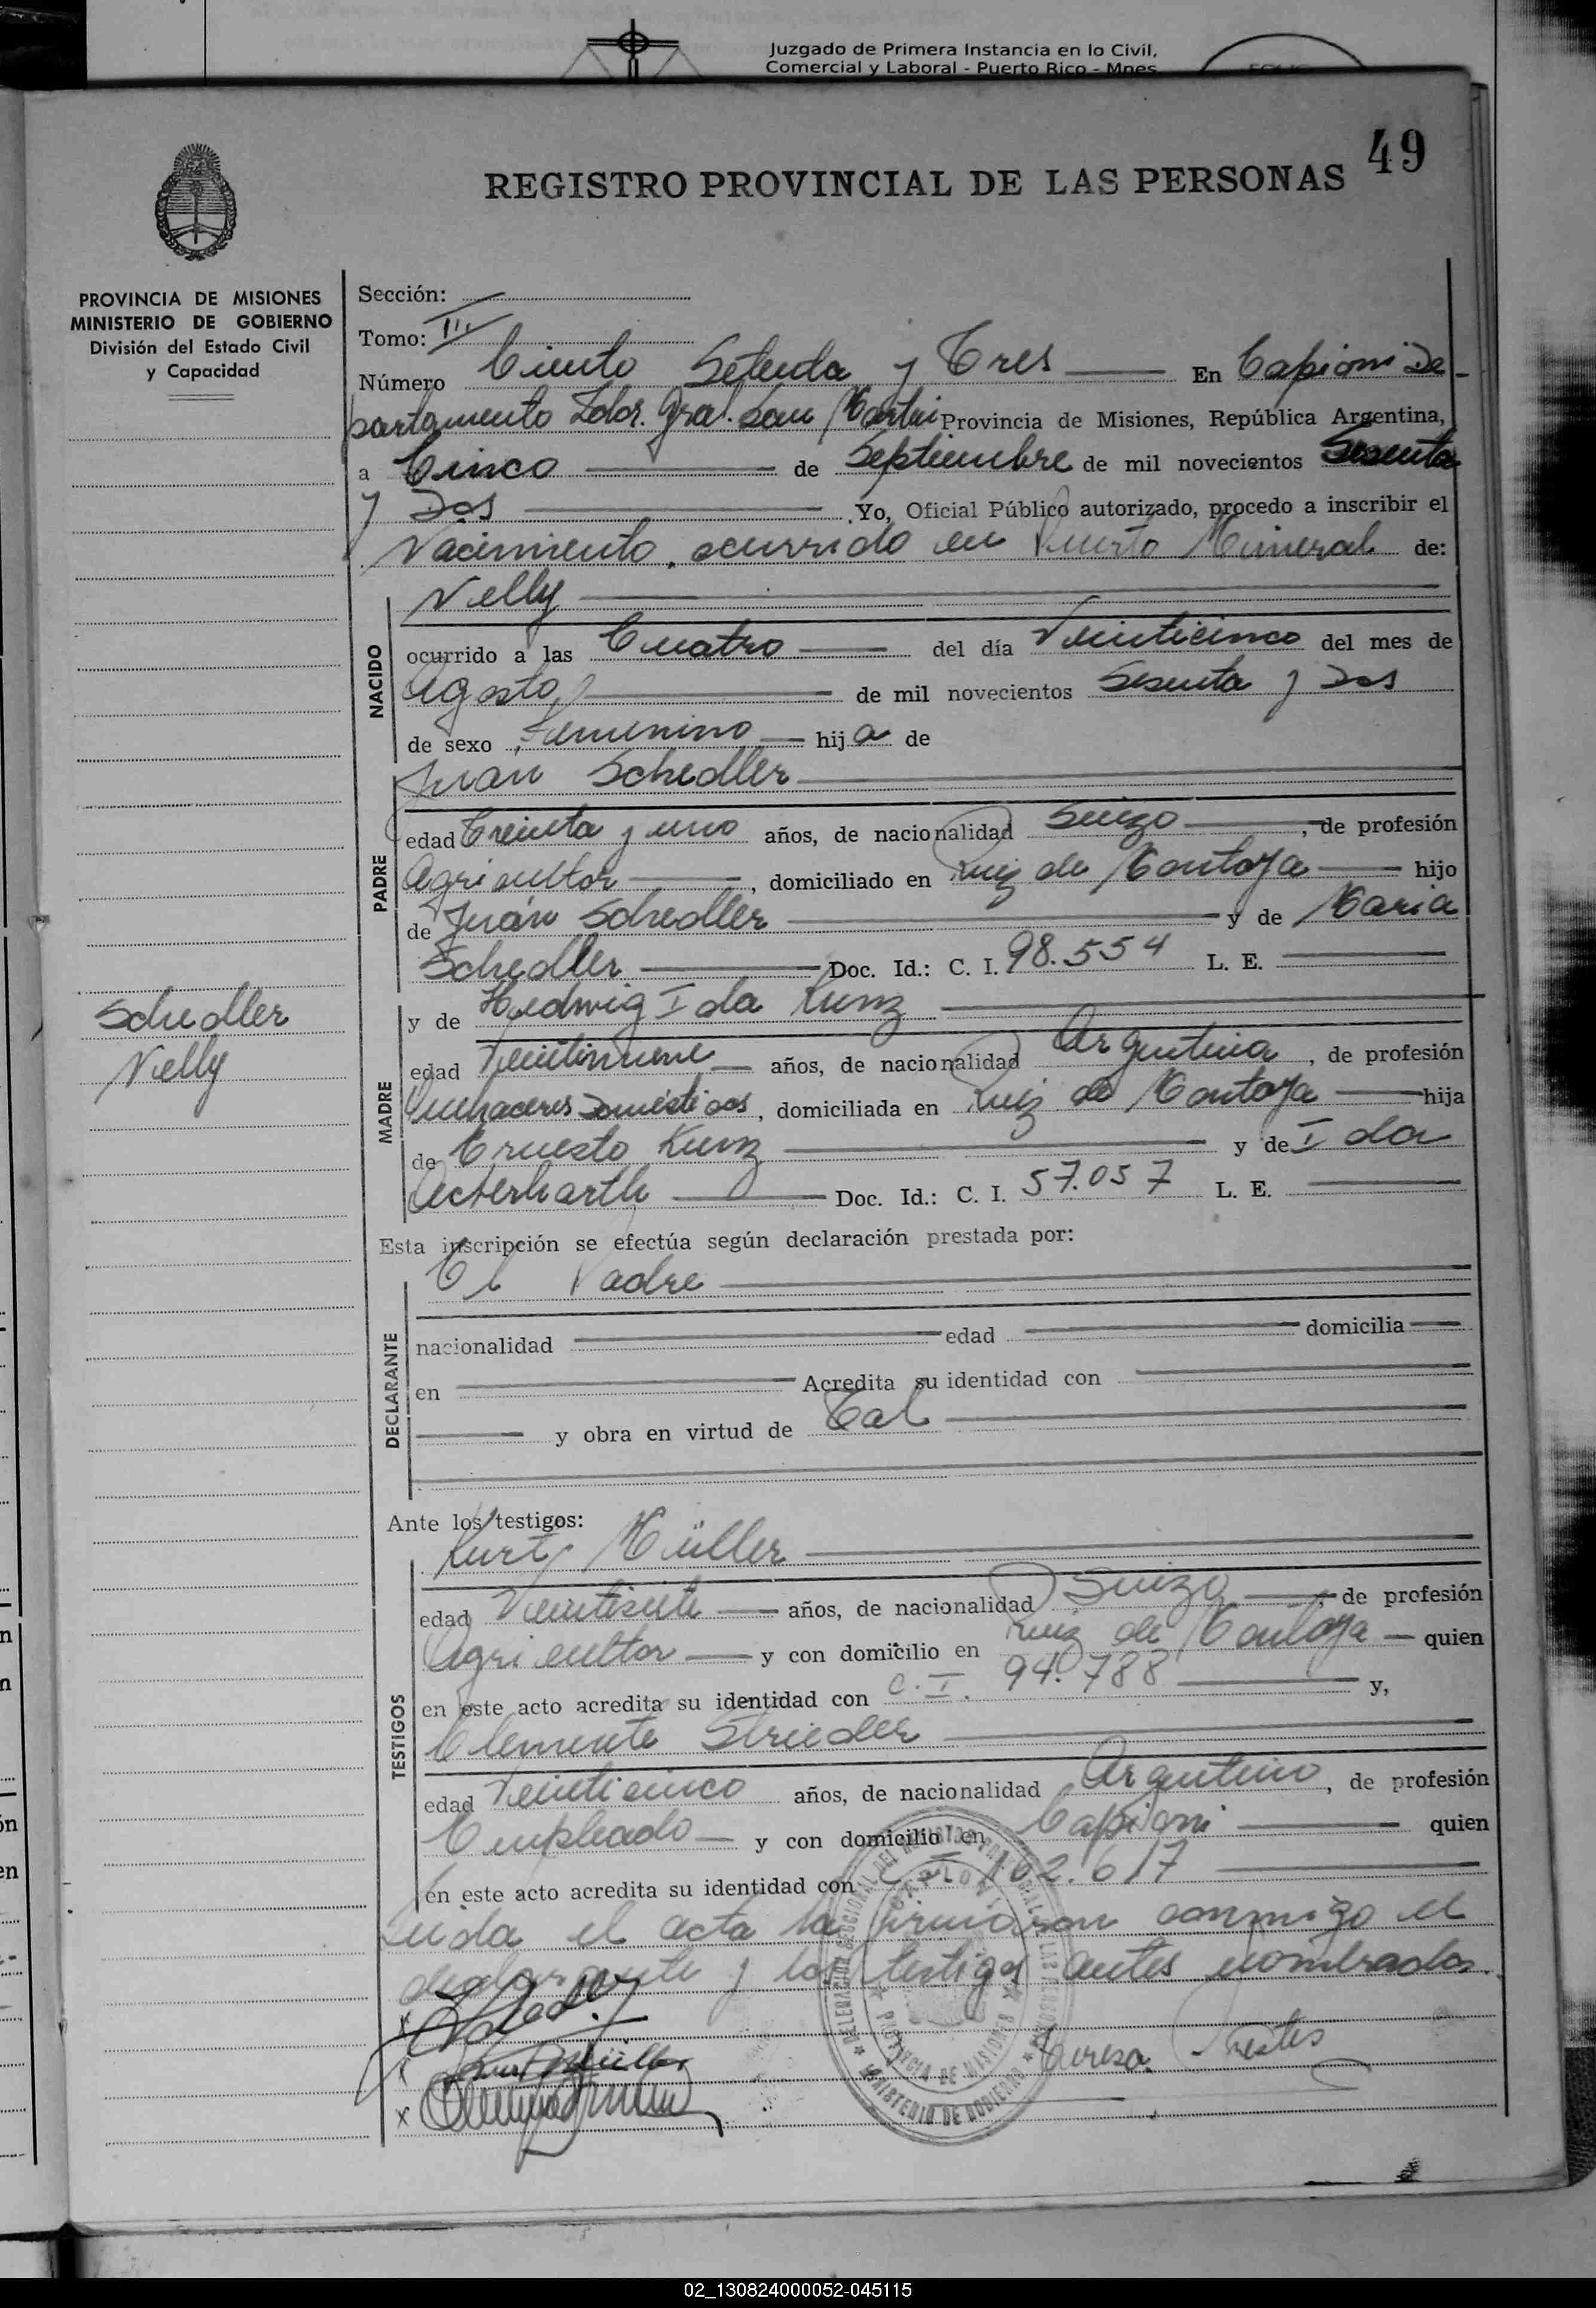 Juzgado de Primera Instancia en lo Civil,
Comercial y Laboral - Puerto Rico - Mnes
FOLIO
49
REGISTRO PROVINCIAL DE LAS PERSONAS
PROVINCIA DE MISIONES
MINISTERIO DE GOBIERNO
División del Estado Civil
y Capacidad
Sección:
Tomo: III
Número Ciento Setenta y Tres En Capioví De-
partamento Ldor. Gral. San Martín Provincia de Misiones, República Argentina,
a Cinco de Septiembre de mil novecientos Sesenta
y Dos Yo, Oficial Público autorizado, procedo a inscribir el
Nacimiento, ocurrido en Puerto Mineral de:
NACIDO
Nelly
ocurrido a las Cuatro del día Veinticinco del mes de
Agosto de mil novecientos Sesenta y Dos
de sexo Femenino hija de
PADRE
Juan Schedler
edad Treinta y uno años, de nacionalidad Suizo, de profesión
Agricultor, domiciliado en Ruiz de Montoya hijo
de Juán Schedler y de Maria
Schedler Doc. Id.: C. I. 98.554 L. E.
Schedler
Nelly
MADRE
y de Hedwig Ida Kunz
edad Veintinueve años, de nacionalidad Argentina, de profesión
Quehaceres Domésticos, domiciliada en Ruiz de Montoya hija
de Ernesto Kunz y de Ida
Acterharth Doc. Id.: C. I. 57.057 L. E.
Esta inscripción se efectúa según declaración prestada por:
DECLARANTE
El Padre
nacionalidad edad domicilia
en Acredita su identidad con
y obra en virtud de Tal
Ante los testigos:
TESTIGOS
Kurt Müller
edad Veintisiete años, de nacionalidad Suizo, de profesión
Agricultor y con domicilio en Ruiz de Montoya quien
en este acto acredita su identidad con C. I. 94.788 y,
Clemente Strieder
edad Veinticinco años, de nacionalidad Argentino, de profesión
Empleado y con domicilio en Capioví quien
en este acto acredita su identidad con C. I. 102.617
Leida el acta la firmaron conmigo el
declarante y los testigos antes nombrados.
Kurt Müller
Teresa Prestes
PROVINCIA DE MISIONES
MINISTERIO DE GOBIERNO
02_130824000052-045115